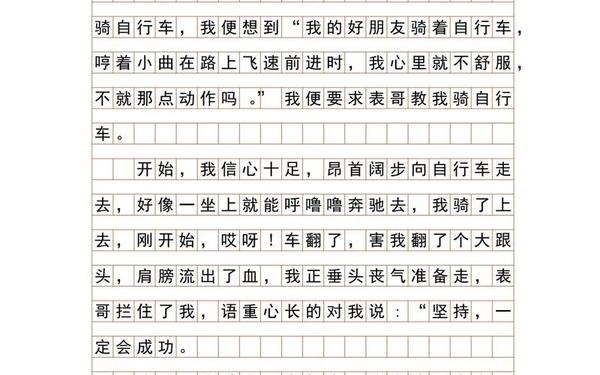 骑自行车，我便想到“我的好朋友骑着自行车，
哼着小曲在路上飞速前进时，我心里就不舒服，
不就那点动作吗。”我便要求表哥教我骑自行
车。
开始，我信心十足，昂首阔步向自行车走
去，好像一坐上就能呼噜噜奔驰去，我骑了上
去，刚开始，哎呀！车翻了，害我翻了个大跟
头，肩膀流出了血，我正垂头丧气准备走，表
哥拦住了我，语重心长的对我说：“坚持，一
定会成功。